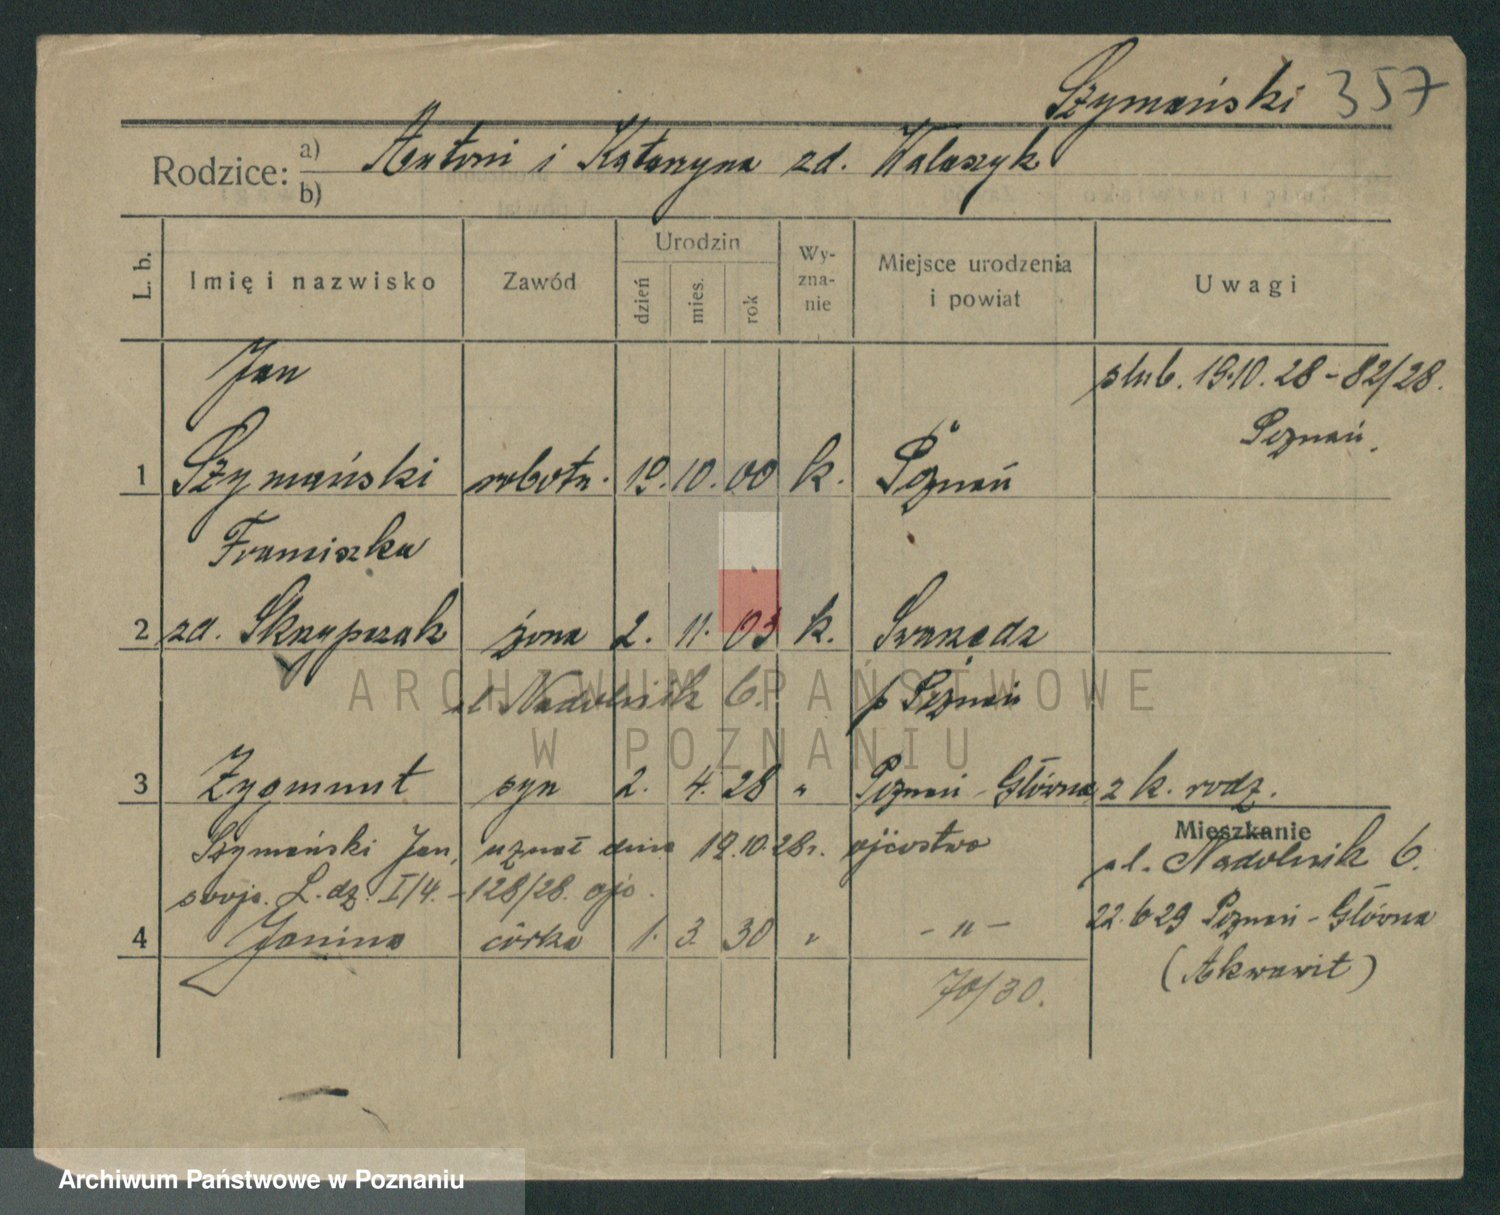 Szymański 357
Rodzice: a) Antoni i Katarzyna zd. Walaszyk
b)
L. b. Imię i nazwisko Zawód Urodzin dzień mies. rok Wy-zna-nie Miejsce urodzenia i powiat Uwagi
Jan ślub. 19.10.28 - 82/28.
Poznań.
1 Szymański robotn. 19. 10. 00 k. Poznań
Franciszka
2 zd. Skrzypczak żona 2. 11. 03 k. Swarzędz
ul. Nadolnik 6. p Poznań
ARCHIWUM PAŃSTWOWE
W POZNANIU
3 Zygmunt syn 2. 4. 28 " Poznań - Główna z k. rodz.
Mieszkanie
Szymański Jan, uznał dnia 19.10.28r. ojcostwo
ul. Nadolnik 6.
swoje. L. dz. I/4. - 128/28.
22.6 29 Poznań - Główna
4 Janina córka 1. 3. 30 " - " -
(Akwawit)
70/30.
Archiwum Państwowe w Poznaniu